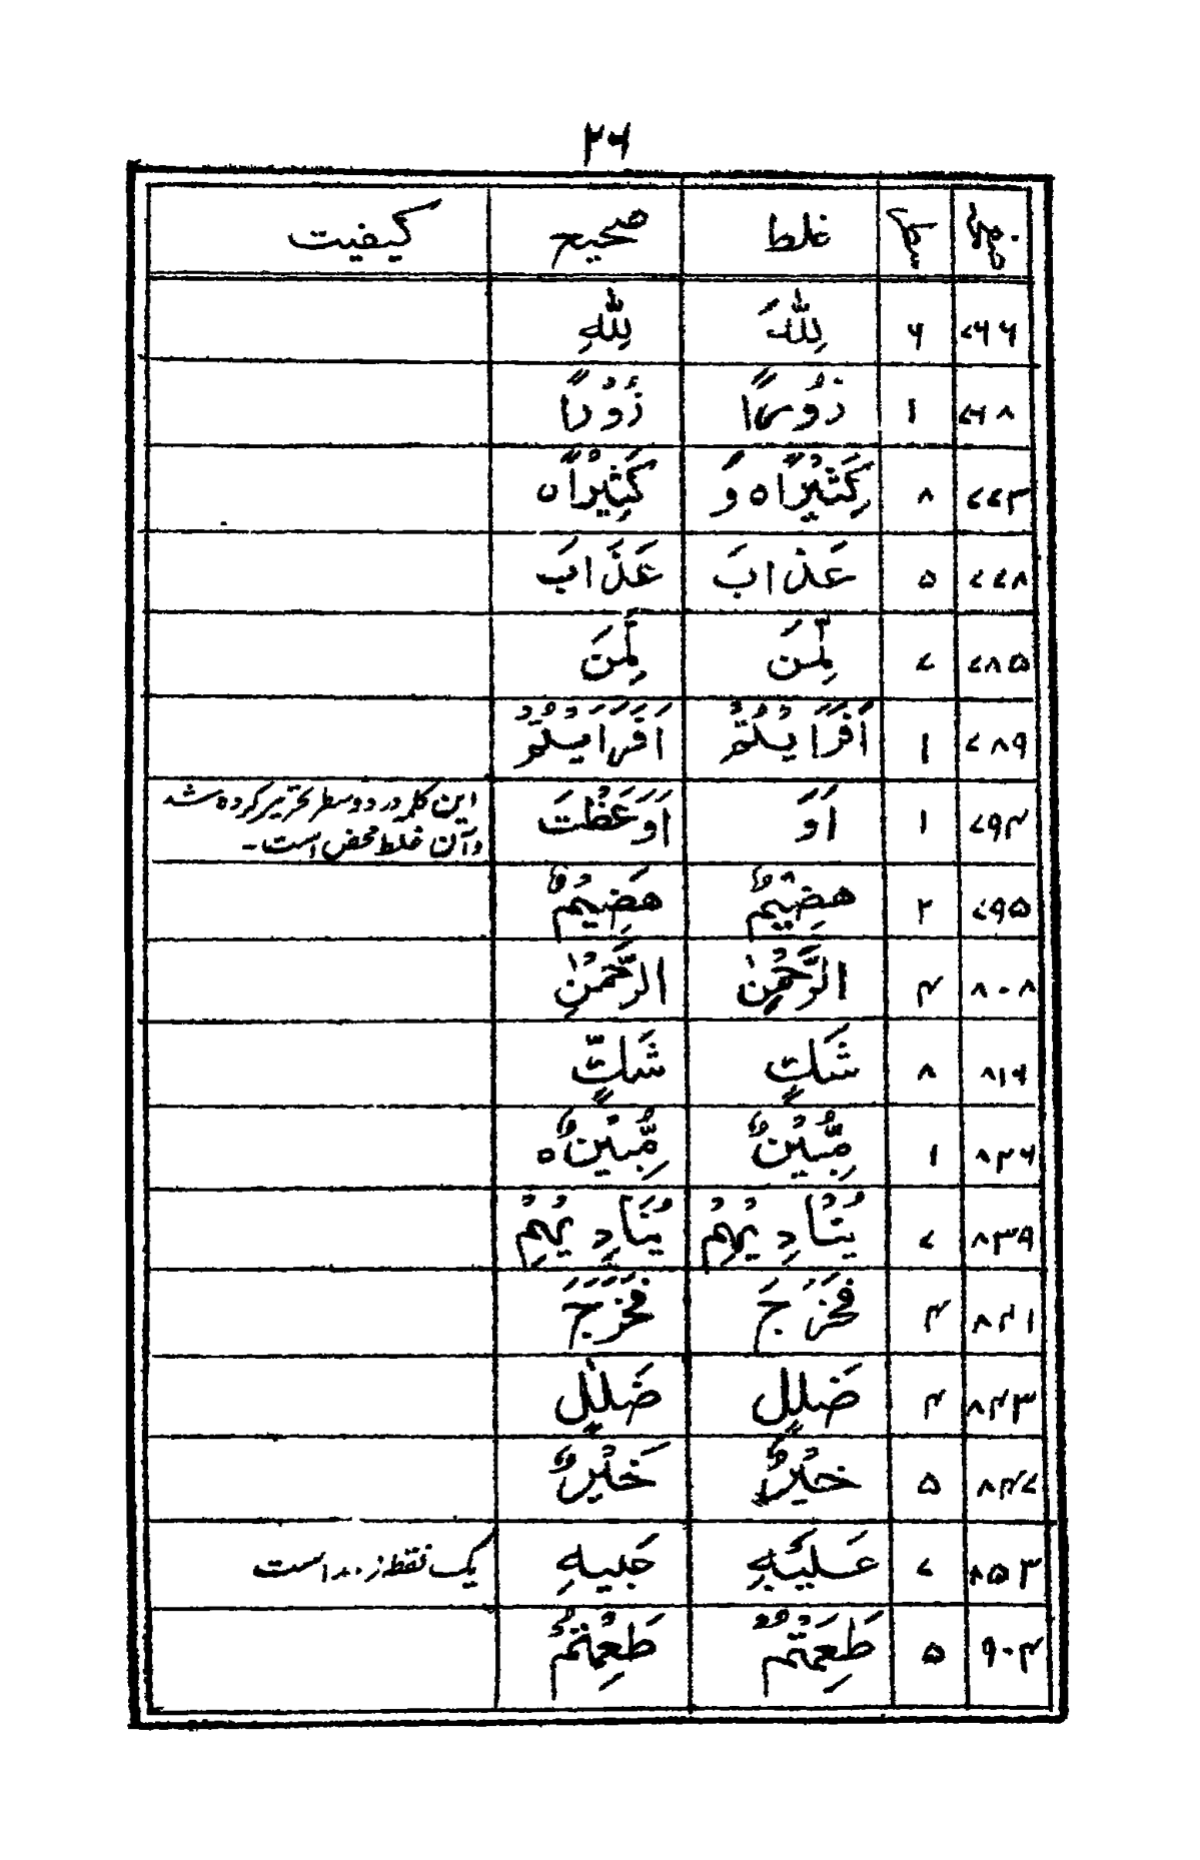 ۲۶
صفحہ سطر غلط صحیح کیفیت
۷۶۶ ۶ لِلّٰهَِ لِلّٰهِ
۷۶۸ ۱ زُوْرًا زُوْرًا
۷۷۳ ۸ كَثِيْرًا ٥ وَ كَثِيْرًا ٥
۷۷۸ ۵ عَذابَ عَذَابَ
۷۸۵ ۷ لِّمَنَ لِمَنَ
۷۸۹ ۱ اَفَرَاَيْتُمْ اَفَرَاَيْتُمْ
۷۹۴ ۱ اَوَ اَوَعَظْتَ این کلمہ در دو سطر تحریر کردہ شد
وآن غلط محض است۔
۷۹۵ ۲ هضِيْمٌ هَضِيْمٌ
۸۰۸ ۴ الرَّحْمٰنِ الرَّحْمٰنِ
۸۱۶ ۸ شَكٍ شَكٍّ
۸۳۶ ۱ مِّبِيْنٌ مُّبِيْنٌ ٥
۸۳۹ ۷ يُنَادِيْهِمْ يُنَادِيْهِمْ
۸۴۱ ۴ فَخَرَجَ فَخَرَجَ
۸۴۳ ۴ ضَلٰلٍ ضَلٰلٍ
۸۴۷ ۵ خيْرٌ خَيْرٌ
۸۵۳ ۷ عَلَيْهِ یک نقطہ زیر است
۹۰۴ ۵ طَعِمْتُمْ طَعِمْتُمْ